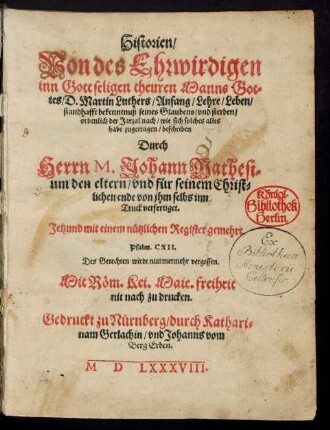 Historien/
Von des Ehrwirdigen
inn Gott seligen theuren Manns Got-
tes/D. Martin Luthers/Anfang/Lehre/Leben/
standhafft bekenntnuß seines Glaubens/vnd sterben/
ordenlich der Jarzal nach/wie sich solches alles
habe zugetragen/beschriben
Durch
Herrn M. Johann Mathesi-
um den eltern/vnd für seinem Christ-
lichen ende von jhm selbs inn
Truck verfertiget.
Jetzund mit einem nützlichen Register gemehrt.
Psalm. CXII.
Des Gerechten wirdt nimmermehr vergessen.
Mit Röm. Kei. Maie. freiheit
nit nach zu drucken.
Gedruckt zu Nürnberg/durch Kathari-
nam Gerlachin/vnd Johanns vom
Berg Erben.
M D LXXXVIII.
Königl.
Bibliothek
Berlin
Ex
Bibliotheca